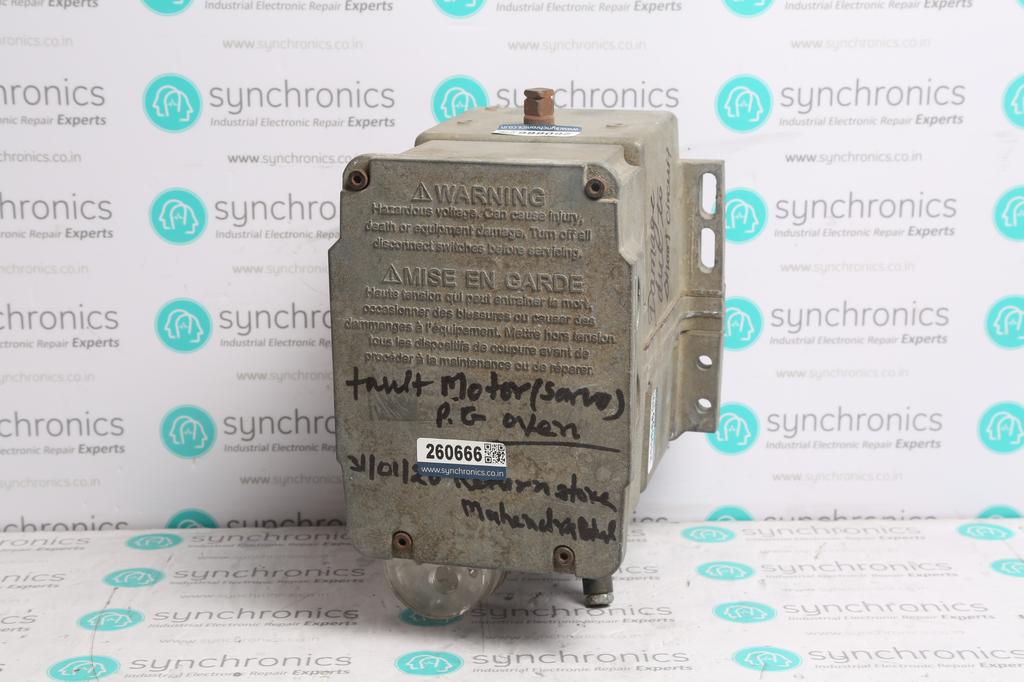 ⚠WARNING
Hazardous voltage. Can cause injury,
death or equipment damage. Turn off all
disconnect switches before servicing.
⚠MISE EN GARDE
Haute tension qui peut entraîner la mort,
occasionner des blessures ou causer des
dammanges à l'équipement. Mettre hors tension
tous les dispositifs de coupure avant de
procéder à la maintenance ou de réparer.
fault Motor(Sarvo)
P.G oven
260666
www.synchronics.co.in
Return store
Damage
synchronics
Industrial Electronic Repair Experts
www.synchronics.co.in